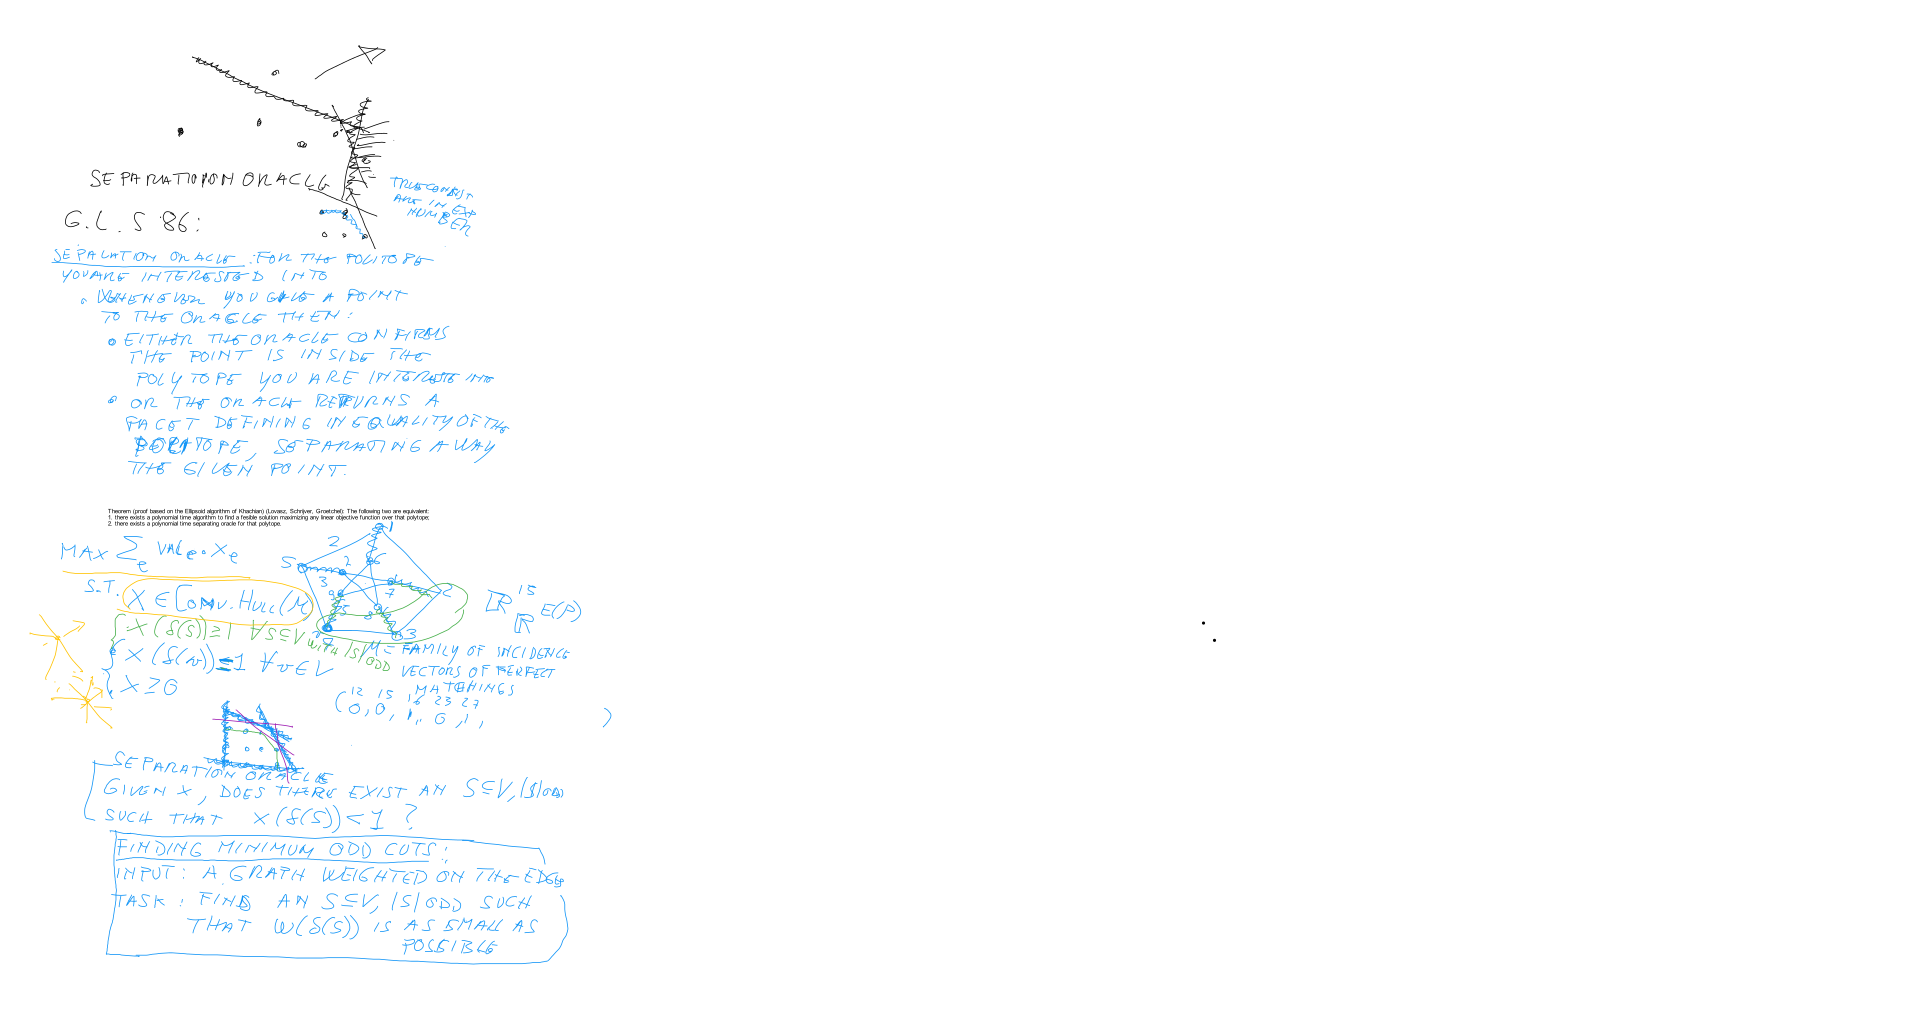 SEPARATION ORACLE
TRUE CONST
ARE IN EXP
NUMBER
G.L.S '86:
SEPARATION ORACLE: FOR THE POLITOPE
YOU ARE INTERESTED INTO
WHENEVER YOU GIVE A POINT
TO THE ORACLE THEN:
EITHER THE ORACLE CONFIRMS
THE POINT IS INSIDE THE
POLYTOPE YOU ARE INTERESTE INTO
OR THE ORACLE RETURNS A
FACET DEFINING INEQUALITY OF THE
POLYTOPE, SEPARATING AWAY
THE GIVEN POINT.
Theorem (proof based on the Ellipsoid algorithm of Khachian) (Lovasz, Schrijver, Groetchel): The following two are equivalent:
1. there exists a polynomial time algorithm to find a fesible solution maximizing any linear objective function over that polytope;
2. there exists a polynomial time separating oracle for that polytope.
MAX ∑e VALe·Xe
S.T. X ∈ CONV.HULL(M)
X(δ(S)) ≥ 1 ∀S⊆V WITH |S| ODD
X(δ(v)) = 1 ∀v∈V
X ≥ 0
ℝ^15
ℝ^E(P)
M = FAMILY OF INCIDENCE
VECTORS OF PERFECT
MATCHINGS
12 15 16 23 27
(0, 0, 1, 0, 1, )
SEPARATION ORACLE
GIVEN X, DOES THERE EXIST AN S⊆V, |S| ODD
SUCH THAT X(δ(S)) < 1 ?
FINDING MINIMUM ODD CUTS:
INPUT: A GRAPH WEIGHTED ON THE EDGES
TASK: FIND AN S⊆V, |S| ODD SUCH
THAT W(δ(S)) IS AS SMALL AS
POSSIBLE